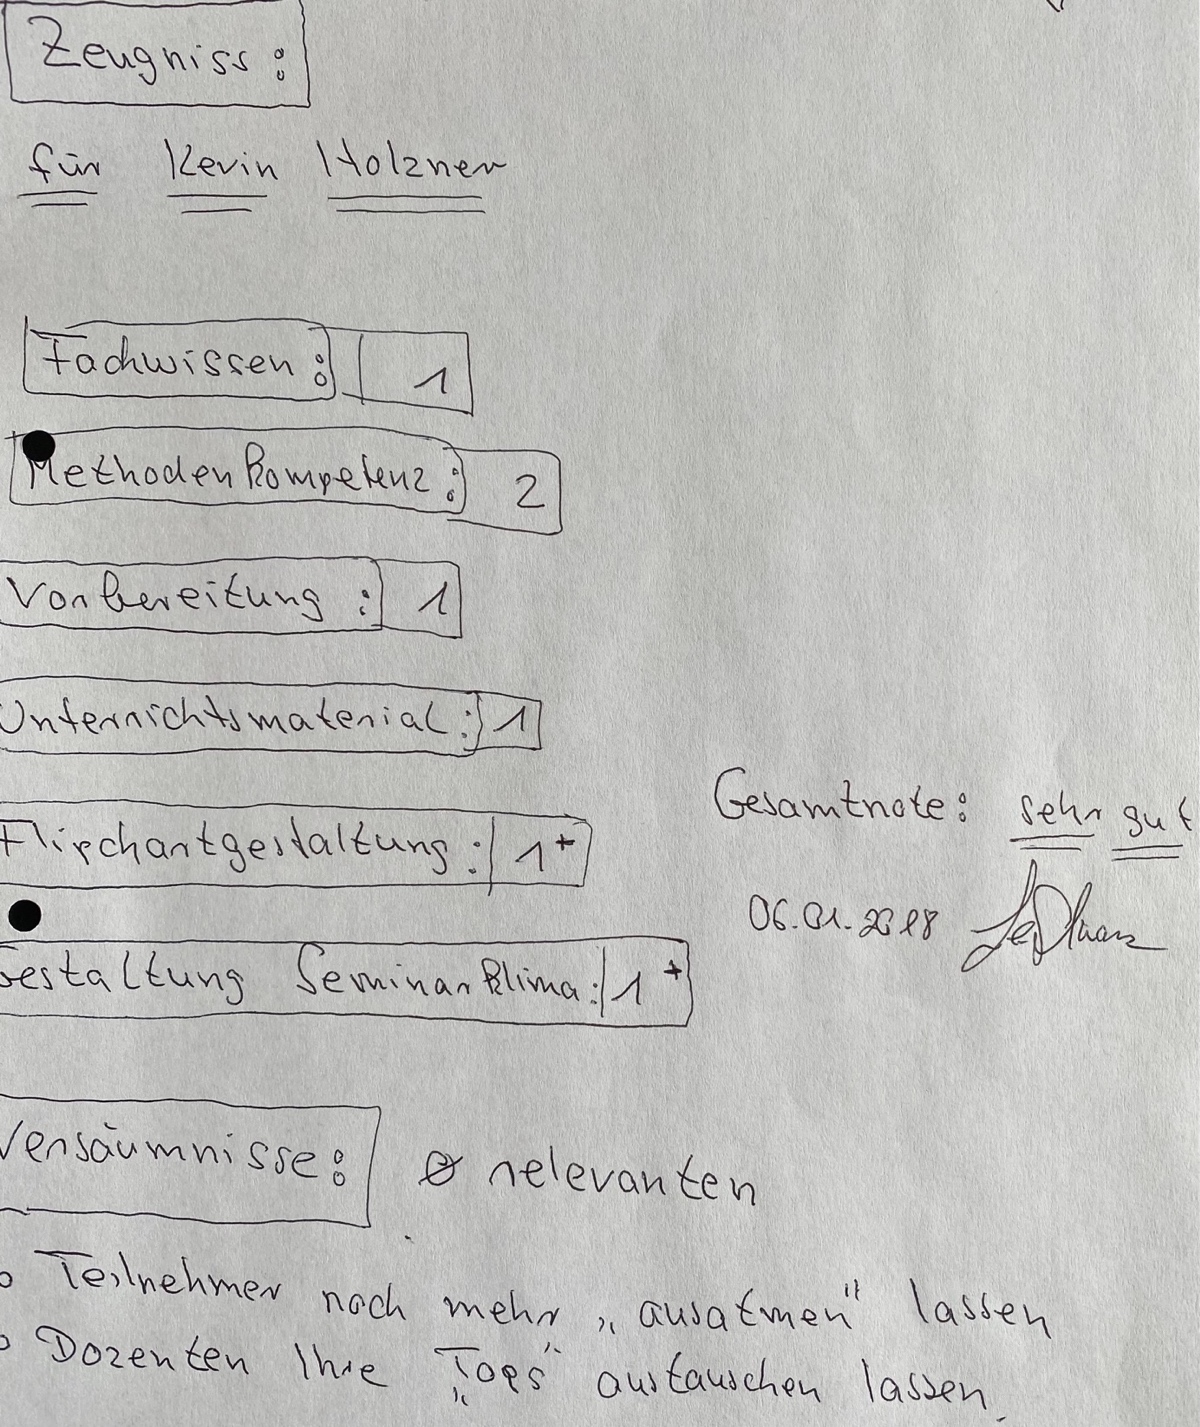 Zeugniss:
für Kevin Holzner
Fachwissen: 1
Methodenkompetenz: 2
Vorbereitung: 1
Unterrichtsmaterial: 1
Flipchartgestaltung: 1+
Gesamtnote: sehr gut
06.01.2018
Gestaltung Seminarklima: 1+
Versäumnisse: ø relevanten
o Teilnehmer noch mehr „ausatmen" lassen
o Dozenten Ihre „Tops" austauschen lassen.